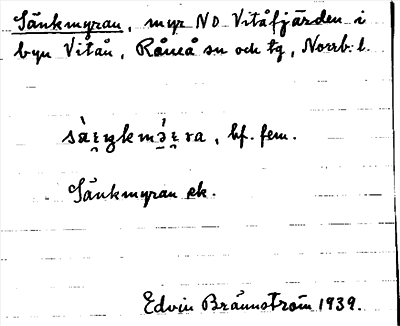 Sänkmyran, myr NO Vitåfjärden i
byn Vitån, Råneå sn och tg, Norrb. l.
bf. fem.
Sänkmyran ek.
Edvin Brännström 1939.